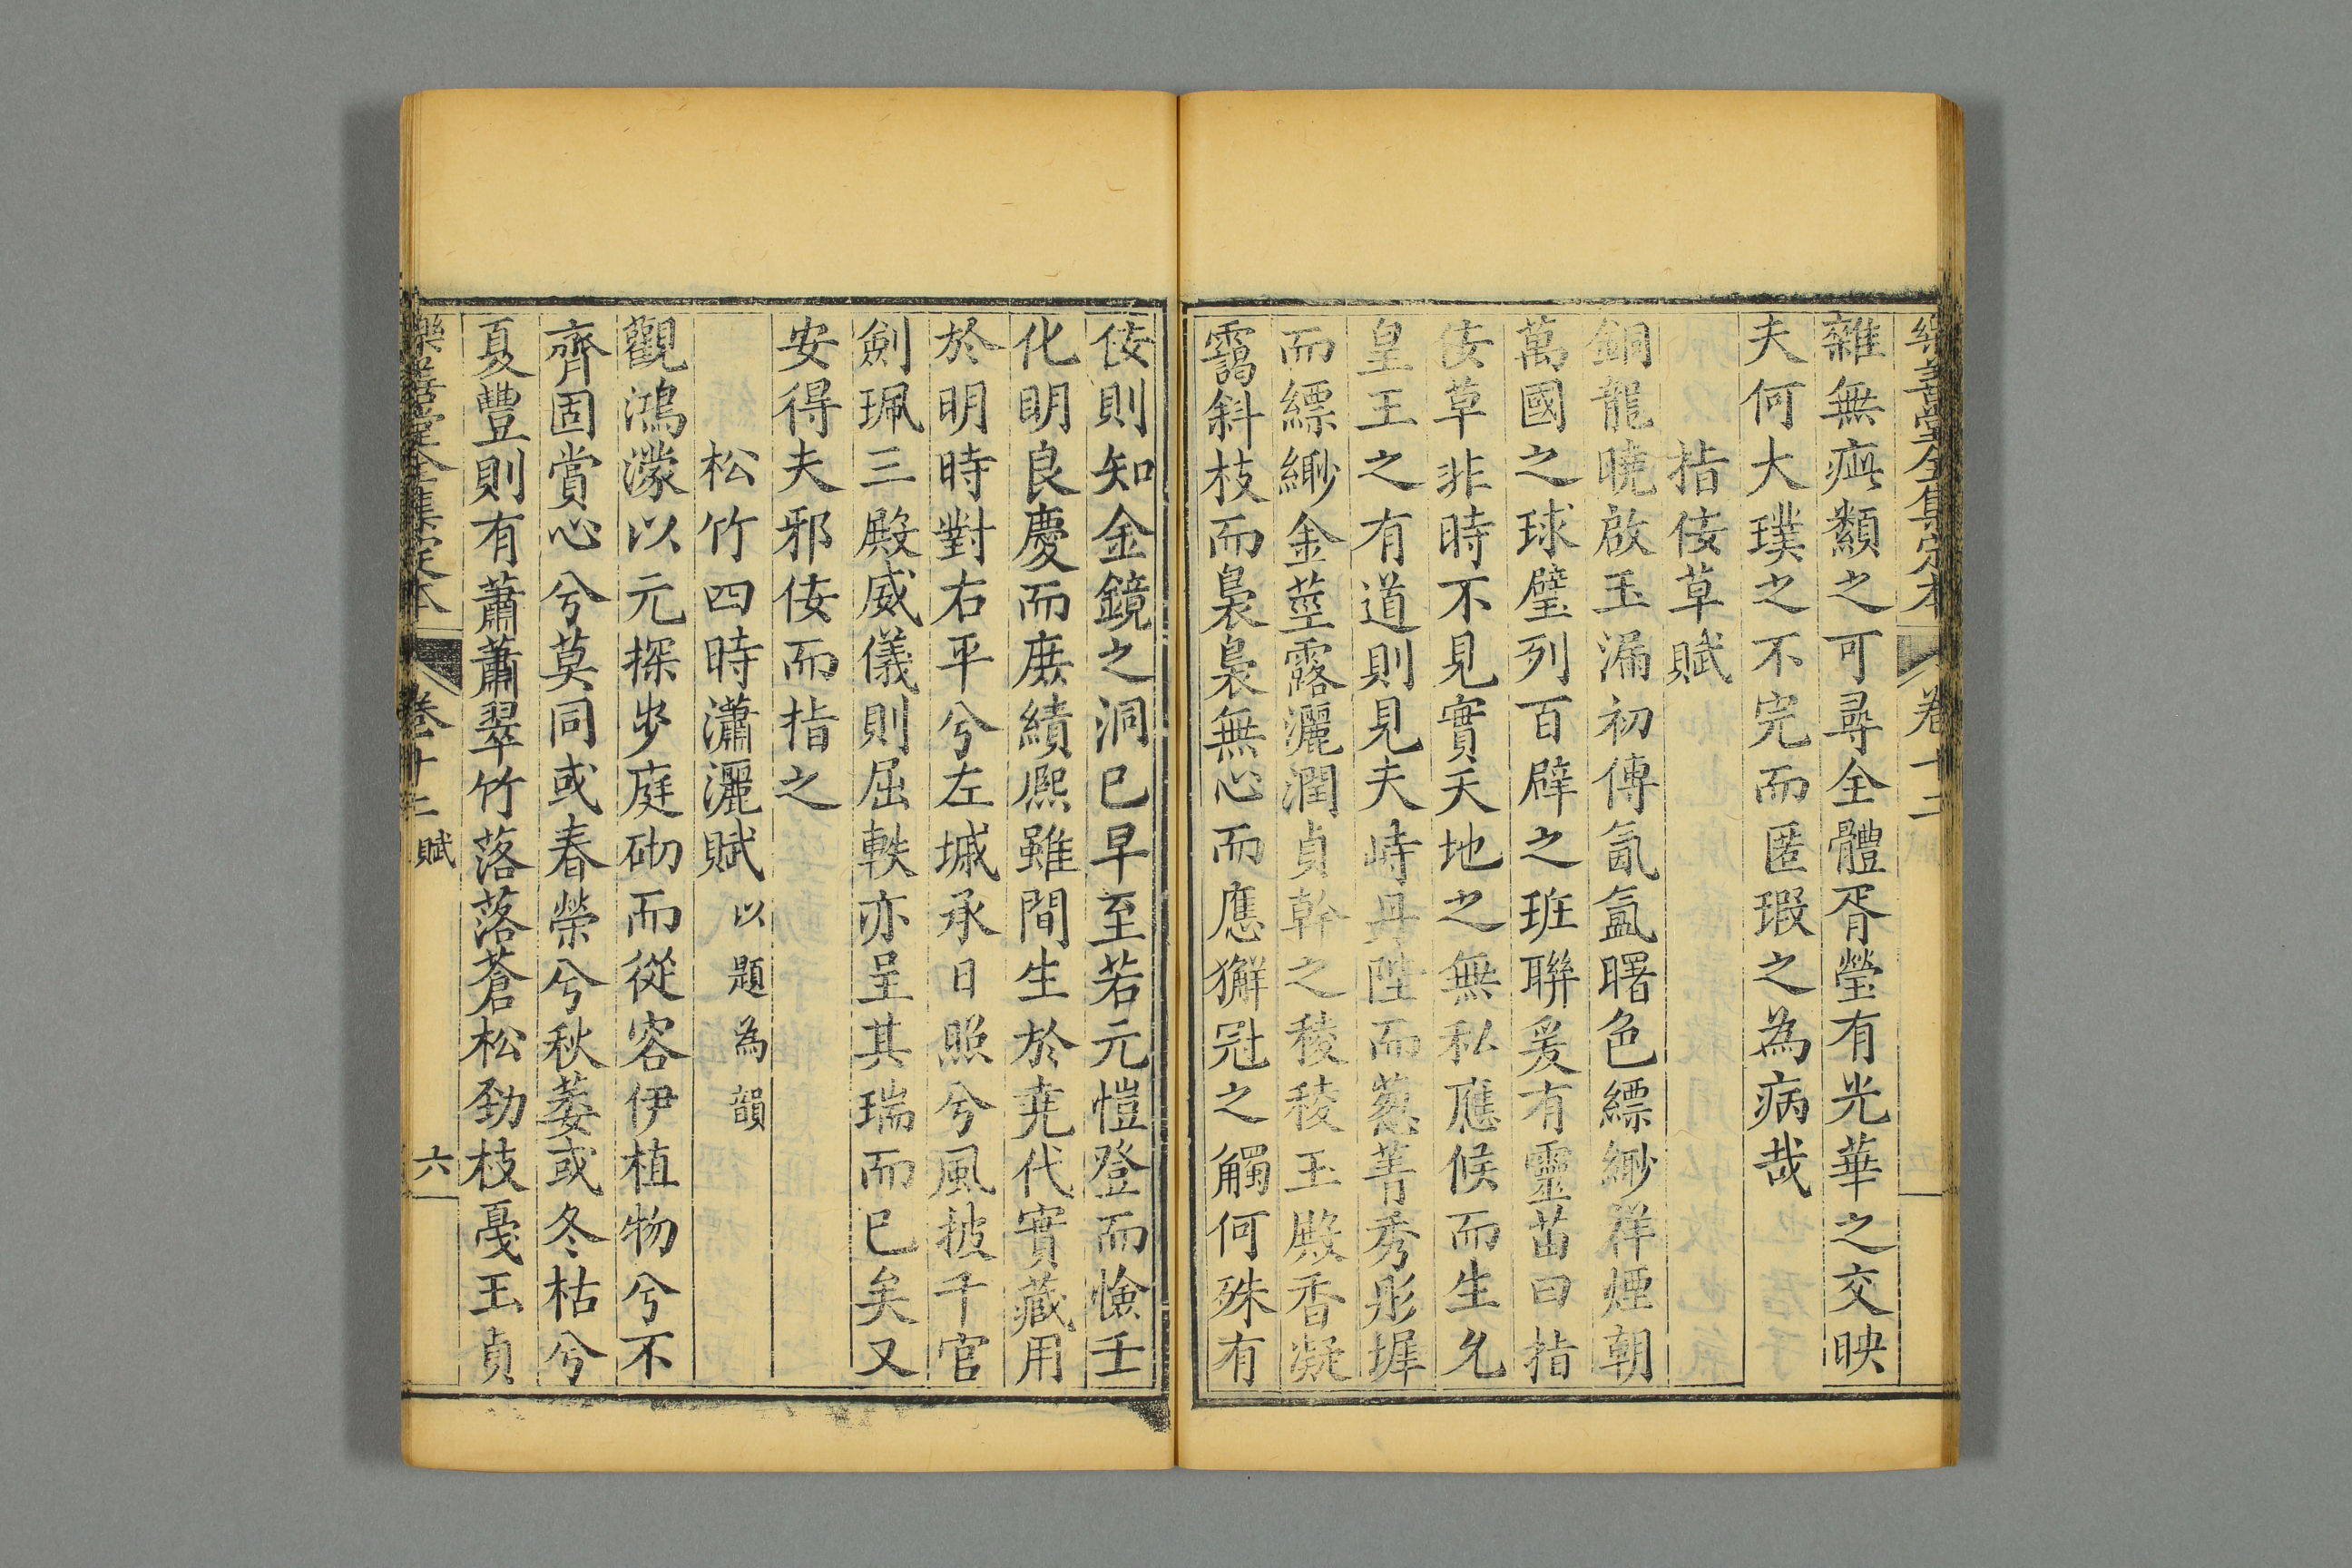 樂善堂全集定本 卷十二
雜無疵纇之可尋全體胥瑩有光華之交映
夫何大璞之不完而匿瑕之為病哉
指佞草賦
銅龍曉啟玉漏初傳氤氳曙色縹緲祥煙朝
萬國之球璧列百辟之班聯爰有靈茁曰指
佞草非時不見實天地之無私應候而生允
皇王之有道則見夫峙丹陛而蔥菁秀彤墀
而縹緲金莖露灑潤貞幹之稜稜玉殿香凝
靄斜枝而裊裊無心而應獬冠之觸何殊有
佞則知金鏡之洞已早至若元愷登而憸壬
化明良慶而庶績熈雖間生於堯代實藏用
於明時對右平兮左墄承日照兮風披千官
劍珮三殿威儀則屈軼亦呈其瑞而已矣又
安得夫邪佞而指之
松竹四時瀟灑賦以題為韻
觀鴻濛以元探步庭砌而從容伊植物兮不
齊固賞心兮莫同或春榮兮秋萎或冬枯兮
夏豐則有蕭蕭翠竹落落蒼松勁枝戛玉貞
樂善堂全集定本 卷十二 賦 六